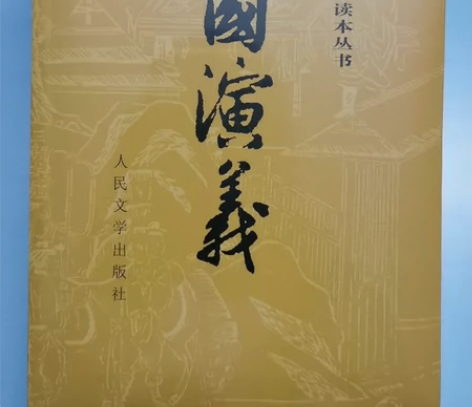 读本丛书
國演義
人民文学出版社